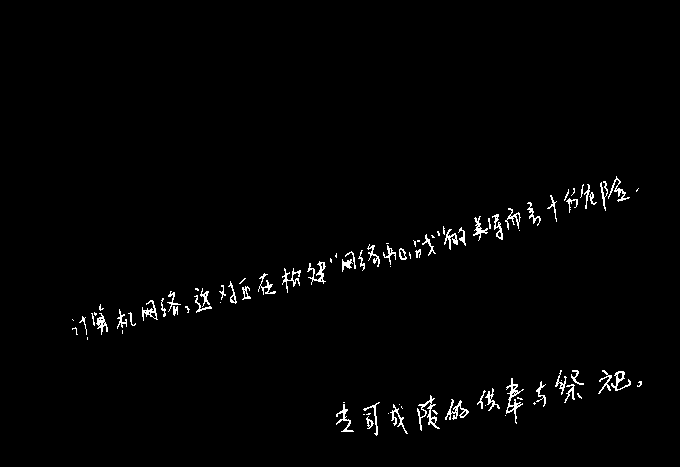 计算机网络,这对正在构建"网络中心战"的美军而言十分危险.
专司戎陵的供奉与祭祀。